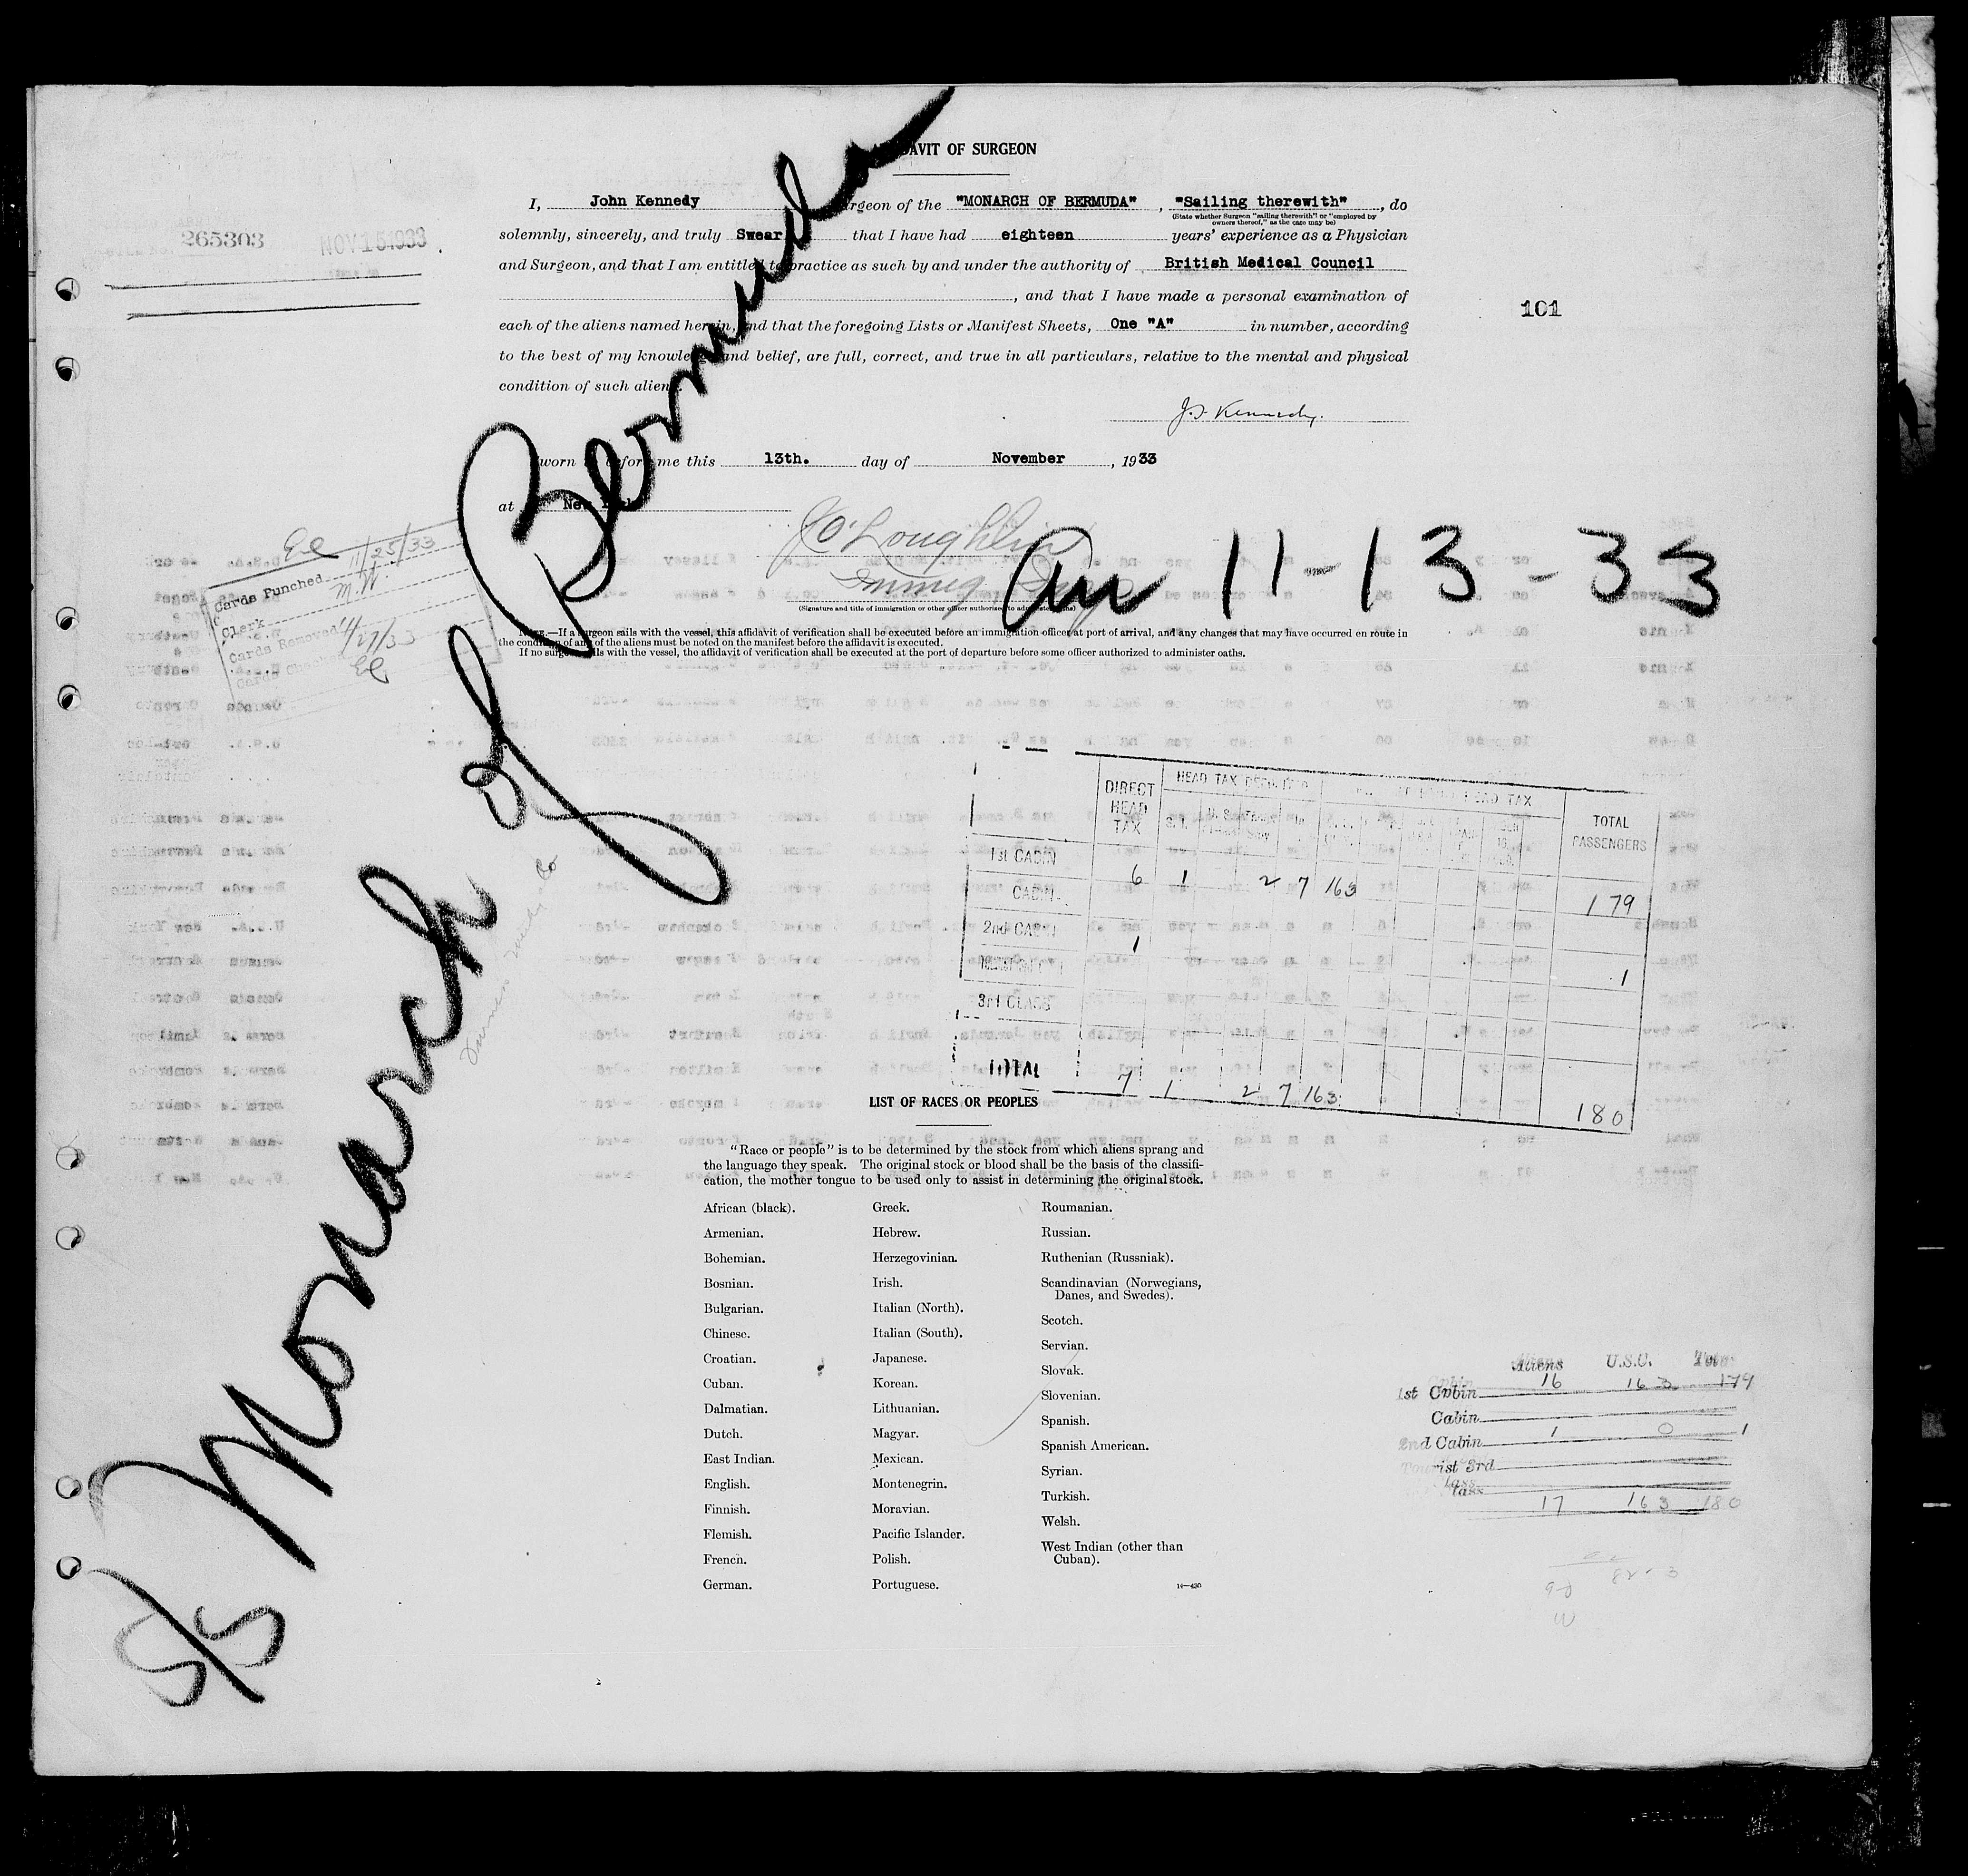 AFFIDAVIT OF SURGEON
I, John Kennedy Surgeon of the "MONARCH OF BERMUDA", "Sailing therewith", do
(State whether Surgeon "sailing therewith" or "employed by
owners thereof," as the case may be)
solemnly, sincerely, and truly Swear that I have had eighteen years' experience as a Physician
and Surgeon, and that I am entitled to practice as such by and under the authority of British Medical Council
, and that I have made a personal examination of
each of the aliens named herein, and that the foregoing Lists or Manifest Sheets, One "A" in number, according
to the best of my knowledge and belief, are full, correct, and true in all particulars, relative to the mental and physical
condition of such aliens.
J.S. Kennedy.
Sworn to before me this 13th. day of November, 1933
at New York
J O'Loughlin
Immig. Insp
(Signature and title of immigration or other officer authorized to administer oaths)
NOTE.—If a surgeon sails with the vessel, this affidavit of verification shall be executed before an immigration officer at port of arrival, and any changes that may have occurred en route in
the condition of any of the aliens must be noted on the manifest before the affidavit is executed.
If no surgeon sails with the vessel, the affidavit of verification shall be executed at the port of departure before some officer authorized to administer oaths.
265303 NOV 15 1933
101
S/S Monarch of Bermuda
Arr 11-13-33
Cards Punched 11/25/33
Clerk M.W.
Cards Removed 11/27/33
Cards Check
DIRECT HEAD TAX
TOTAL PASSENGERS
1st CABIN 6 1 2 7 163 179
CABIN
2nd CABIN 1 1
3rd CLASS
TOTAL 7 1 2 7 163 180
LIST OF RACES OR PEOPLES
"Race or people" is to be determined by the stock from which aliens sprang and
the language they speak. The original stock or blood shall be the basis of the classifi-
cation, the mother tongue to be used only to assist in determining the original stock.
African (black).
Armenian.
Bohemian.
Bosnian.
Bulgarian.
Chinese.
Croatian.
Cuban.
Dalmatian.
Dutch.
East Indian.
English.
Finnish.
Flemish.
French.
German.
Greek.
Hebrew.
Herzegovinian.
Irish.
Italian (North).
Italian (South).
Japanese.
Korean.
Lithuanian.
Magyar.
Mexican.
Montenegrin.
Moravian.
Pacific Islander.
Polish.
Portuguese.
Roumanian.
Russian.
Ruthenian (Russniak).
Scandinavian (Norwegians,
Danes, and Swedes).
Scotch.
Servian.
Slovak.
Slovenian.
Spanish.
Spanish American.
Syrian.
Turkish.
Welsh.
West Indian (other than
Cuban).
Aliens U.S.C. Total
1st Cabin 16 163 179
Cabin
2nd Cabin 1 0 1
Tourist 3rd
17 163 180